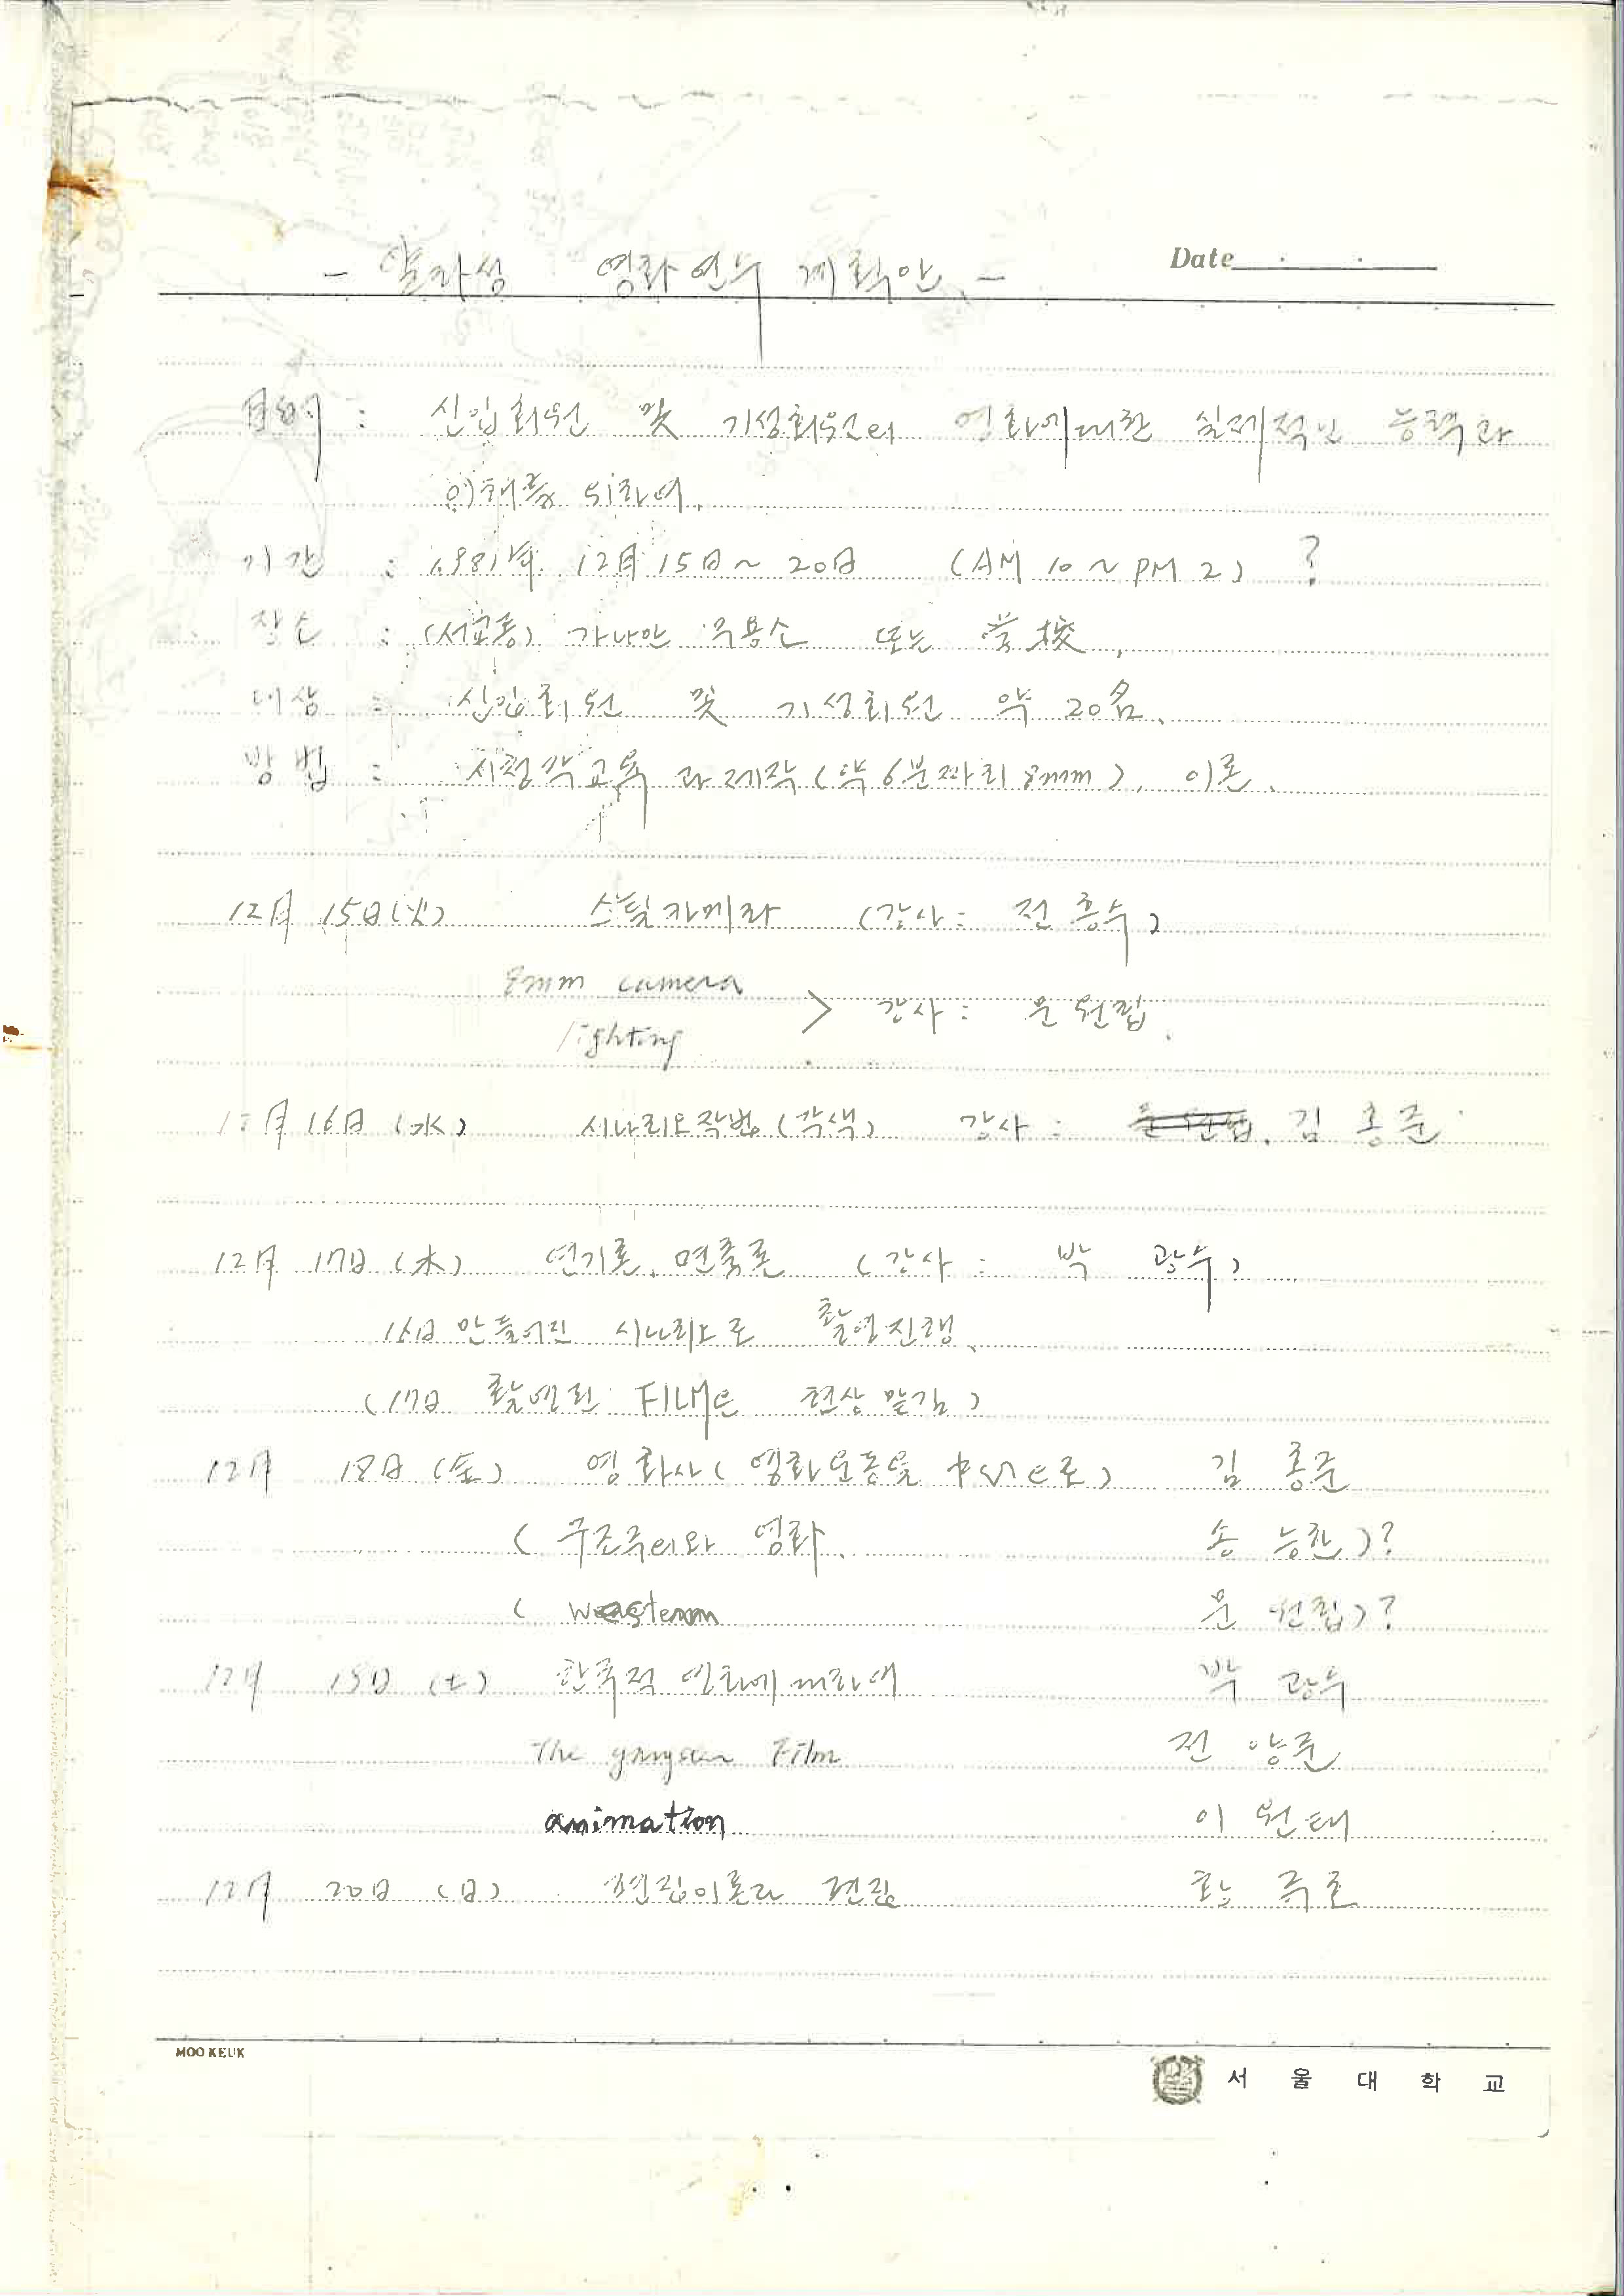 Date
- 얄라성 영화연수 계획안 -
目的 : 신입회원 및 기성회원의 영화에대한 실제적인 능력과
이해를 위하여.
기간 : 1981年 12月 15日 ~ 20日 (AM 10 ~ PM 2) ?
장소 : (서교동) 가나안 또는 学校.
대상 : 신입회원 및 기성회원 약 20名.
방법 : 시청각교육 과 제작 (약 6분짜리 8mm), 이론.
12月 15日(火) 스틸카메라 (강사: 전흥수)
8mm camera
lighting > 강사:
12月 16日 (水) 시나리오작법 (각색) 강사: 김홍준
12月 17日 (木) 연기론, 연출론 (강사: 박광수)
16日 만들어진 시나리오로 촬영진행.
(17日 촬영된 FILM은 현상 맡김)
12月 18日 (金) 영화사 (영화운동을 中心으로) 김홍준
( 구조주의와 영화. 송능한)?
( )?
12月 19日 (土) 한국적 영화에 대하여 박광수
The Film 전양준
animation 이원태
12月 20日 (日) 편집이론과 편집 황규호
MOO KEUK
서울대학교